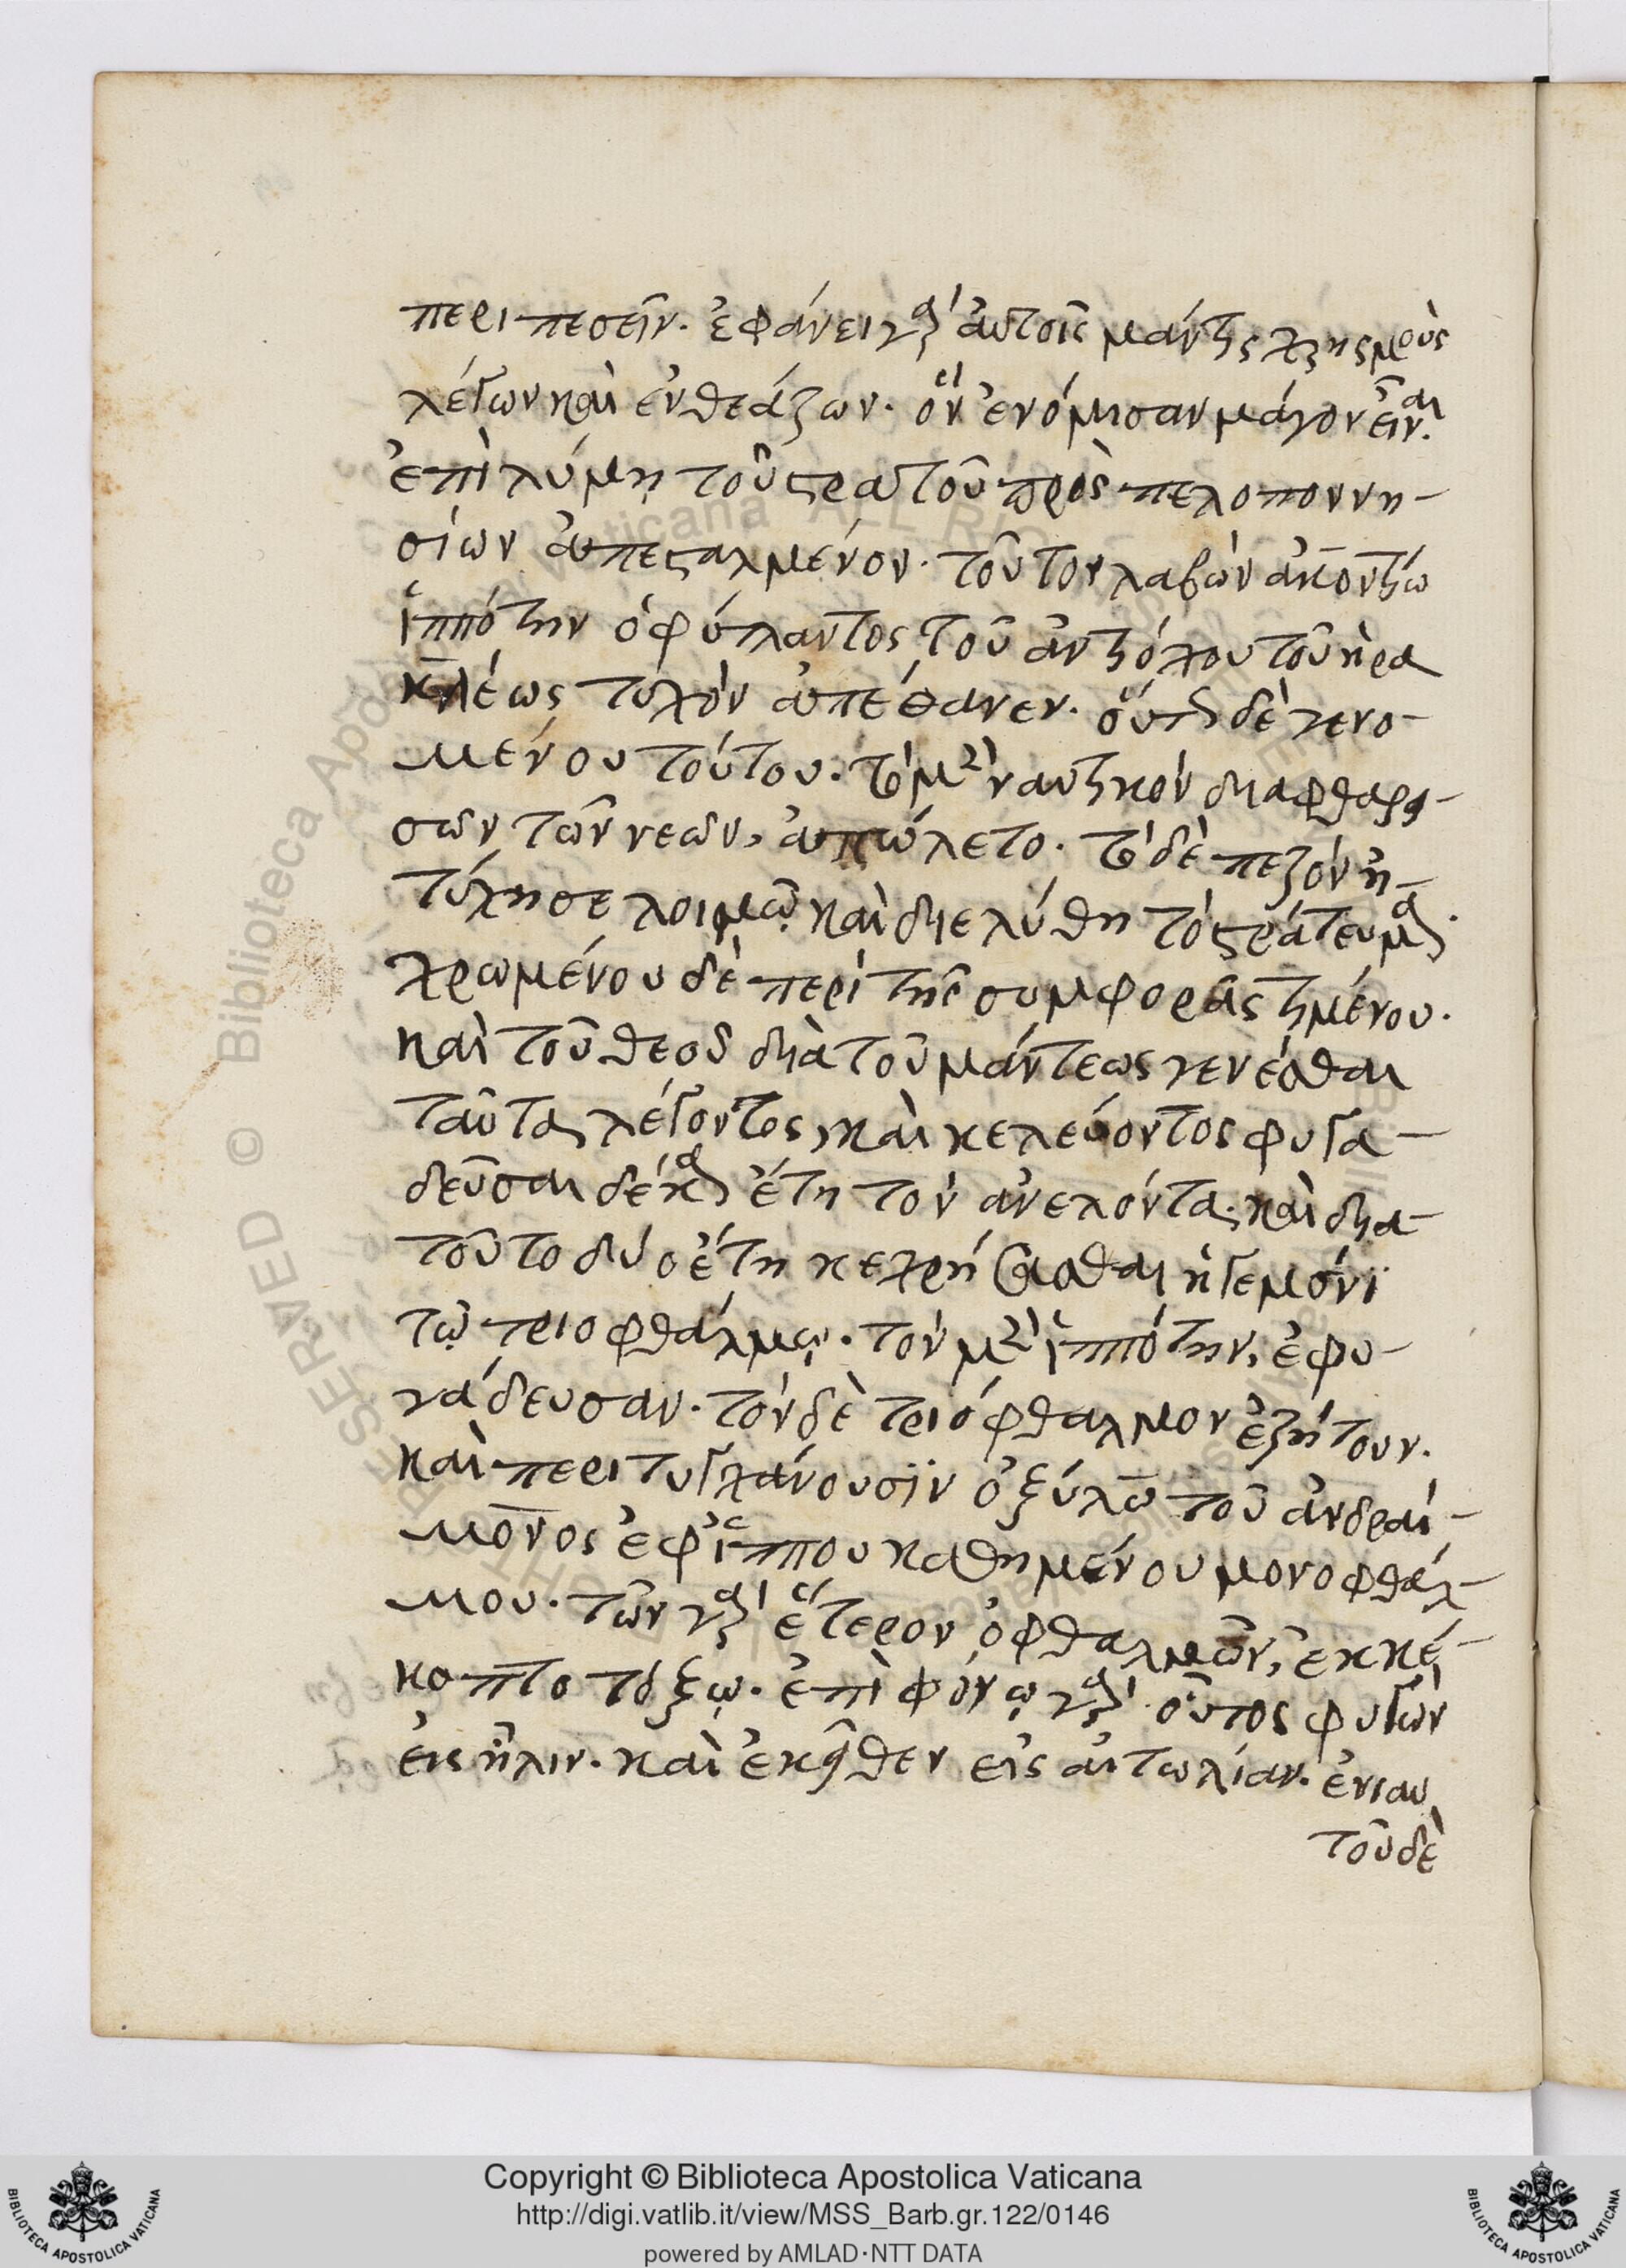 περιπεσεῖν. ἐφάνει γὰρ αὐτοῖς μάντις χρησμοὺς
λέγων καὶ ἐνθεάζων. ὃν ἐνόμισαν μάγον εἶναι
ἐπὶ λύμῃ τοῦ στρατοῦ πρὸς πελοποννη-
σίων ἀπεσταλμένον. τοῦτον λαβὼν ἀκοντίω
ἱππότην ὁ φύλαντος τοῦ ἀντιόχου τοῦ ἡρα
κλέως τυχὸν ἀπέθανεν. οὕτως δὲ γενο-
μένου τούτου. τὸ μὲν ναυτικὸν διαφθαρει-
σῶν τῶν νεῶν, ἀπώλετο. τὸ δὲ πεζὸν ἠ-
τύχησε λοιμῶ. καὶ διελύθη τὸ στράτευμα.
χρωμένου δὲ περὶ τῆς συμφορᾶς τημένου.
καὶ τοῦ θεοῦ διὰ τοῦ μάντεως γενέσθαι
ταῦτα λέγοντος, καὶ κελεύοντος φυγα-
δεῦσαι δέκα ἔτη τὸν ἀνελόντα, καὶ δια-
τοῦτο δύο ἔτη κεχρῆσασθαι ἡγεμόνϊ
τῷ τριοφθάλμῳ. τὸν μὲν ἱππότην, ἐφυ-
γάδευσαν. τὸν δὲ τριόφθαλμον ἐζήτουν.
καὶ περιτυγχάνουσϊν ὀξύλω τοῦ ἀνδραί-
μονος ἐφ ἵππου καθημένου μονοφθάλ-
μου. τῶν γὰρ ἕτερον ὀφθαλμῶν, ἐκκέ-
κοπτο τόξῳ. ἐπὶ φόνῳ γὰρ οὗτος φυγὼν
εἰς ἦλιν. καὶ ἐκεῖθεν εἰς αἰτωλίαν. ἐνιαυ
τοῦ δὲ
Copyright © Biblioteca Apostolica Vaticana
http://digi.vatlib.it/view/MSS_Barb.gr.122/0146
powered by AMLAD·NTT DATA